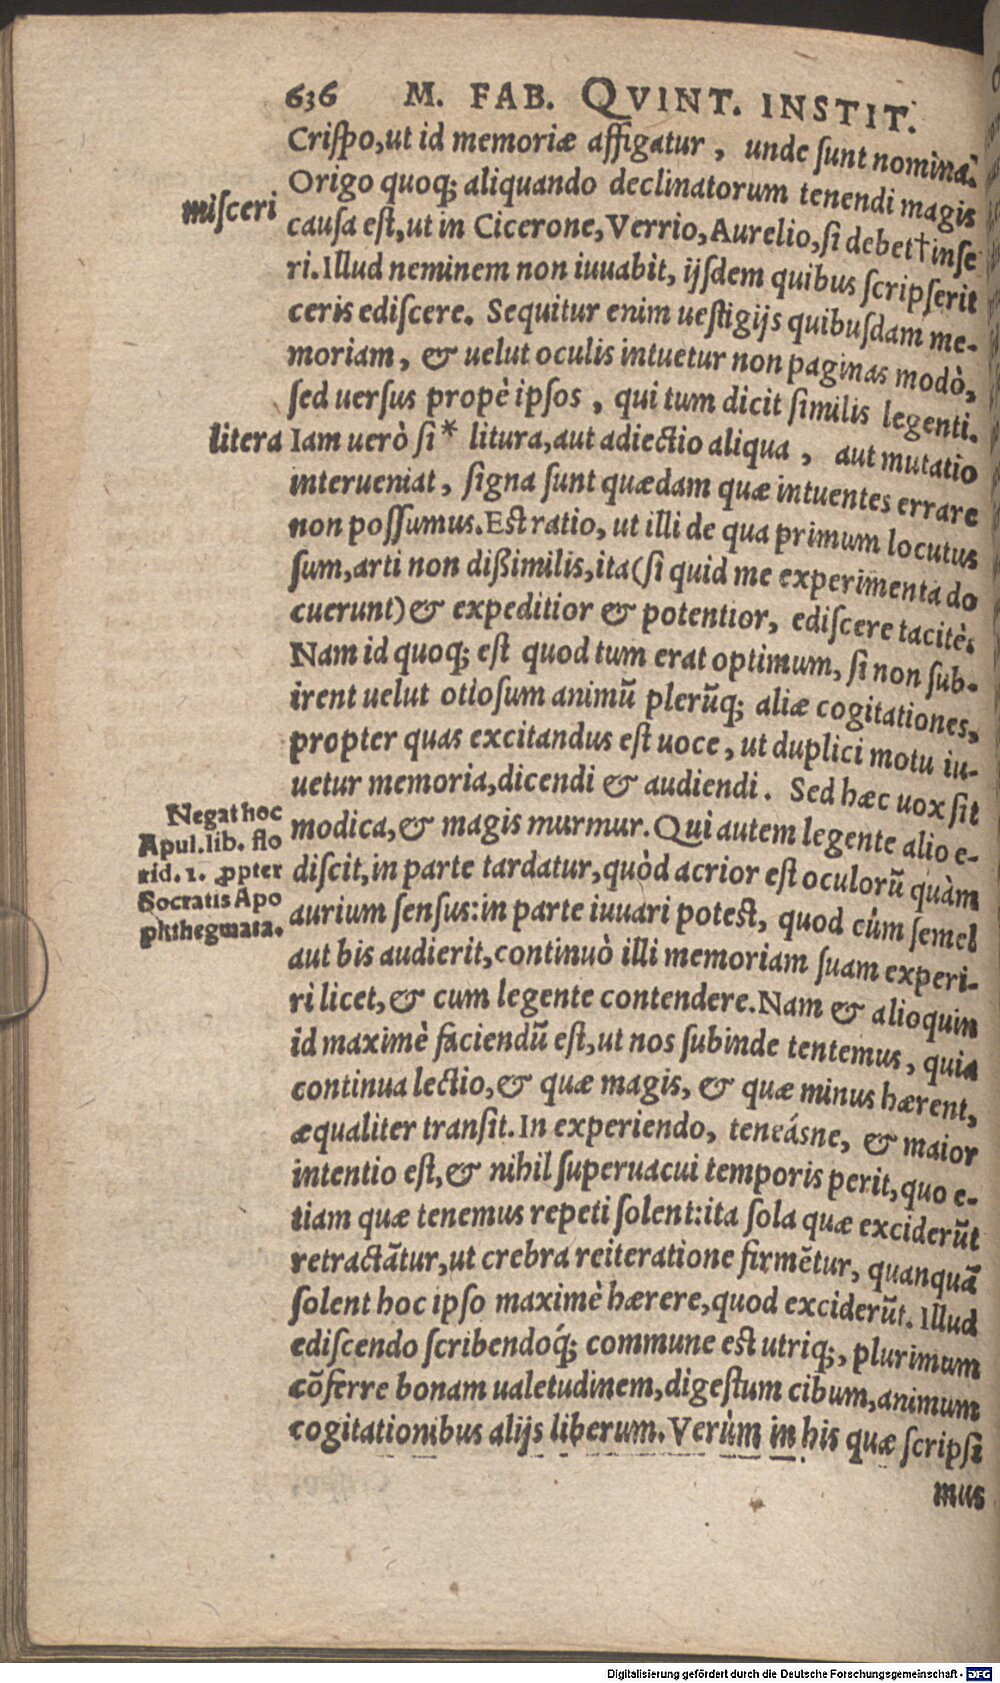 636 M. FAB. QVINT. INSTIT.
Criſpo,ut id memoriæ affigatur, unde ſunt nomina.
Origo quoq; aliquando declinatorum tenendi magis
miſceri
cauſa eſt,ut in Cicerone,Verrio,Aurelio,ſi debet†inſe
ri.Illud neminem non iuuabit, ijſdem quibus ſcripſerit
ceris ediſcere. Sequitur enim ueſtigijs quibuſdam me-
moriam, & uelut oculis intuetur non paginas modò,
ſed uerſus propè ipſos, qui tum dicit ſimilis legenti.
litera
Iam uerò ſi* litura,aut adiectio aliqua, aut mutatio
interueniat, ſigna ſunt quædam quæ intuentes errare
non poſſumus.Eſt ratio, ut illi de qua primum locutus
ſum,arti non dißimilis,ita(ſi quid me experimenta do
cuerunt)& expeditior & potentior, ediſcere tacitè.
Nam id quoq; eſt quod tum erat optimum, ſi non ſub-
irent uelut otioſum animũ plerũq; aliæ cogitationes,
propter quas excitandus eſt uoce, ut duplici motu iu-
uetur memoria,dicendi & audiendi. Sed hæc uox ſit
modica,& magis murmur. Qui autem legente alio e-
diſcit,in parte tardatur,quòd acrior eſt oculorũ quàm
aurium ſenſus:in parte iuuari poteſt, quod cùm ſemel
aut bis audierit,continuò illi memoriam ſuam experi-
ri licet,& cum legente contendere.Nam & alioquin
id maximè faciendũ eſt,ut nos ſubinde tentemus, quia
continua lectio,& quæ magis, & quæ minus hærent,
æqualiter tranſit. In experiendo, teneásne, & maior
intentio eſt,& nihil ſuperuacui temporis perit,quo e-
tiam quæ tenemus repeti ſolent:ita ſola quæ exciderũt
retractãtur,ut crebra reiteratione firmẽtur, quanquã
ſolent hoc ipſo maximè hærere,quod exciderũt. Illud
ediſcendo ſcribendoq́; commune eſt utriq;, plurimum
cõferre bonam ualetudinem,digeſtum cibum,animum
cogitationibus alijs liberum. Verùm in his quæ ſcripſi
mus
Negat hoc
Apul.lib. flo
rid. 1. ꝓpter
Socratis Apo
phthegmata.
Digitalisierung gefördert durch die Deutsche Forschungsgemeinschaft - DFG